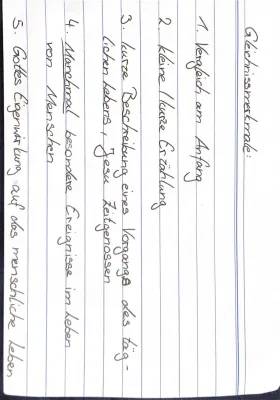 Gleichnissmerkmale:
1. Vergleich am Anfang
2. kleine/kurze Erzählung
3. kurze Beschreibung eines Vorgangs des täg-
lichen lebens, Jesu Zeitgenossen
4. Manchmal besondere Ereignisse im Leben
von Menschen
5. Gottes Eigenwirkung auf das menschliche Leben